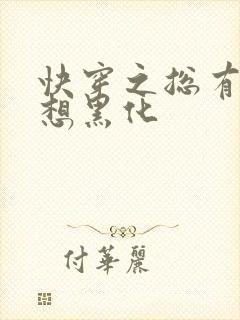 快穿之总有
想黑化
付華麗